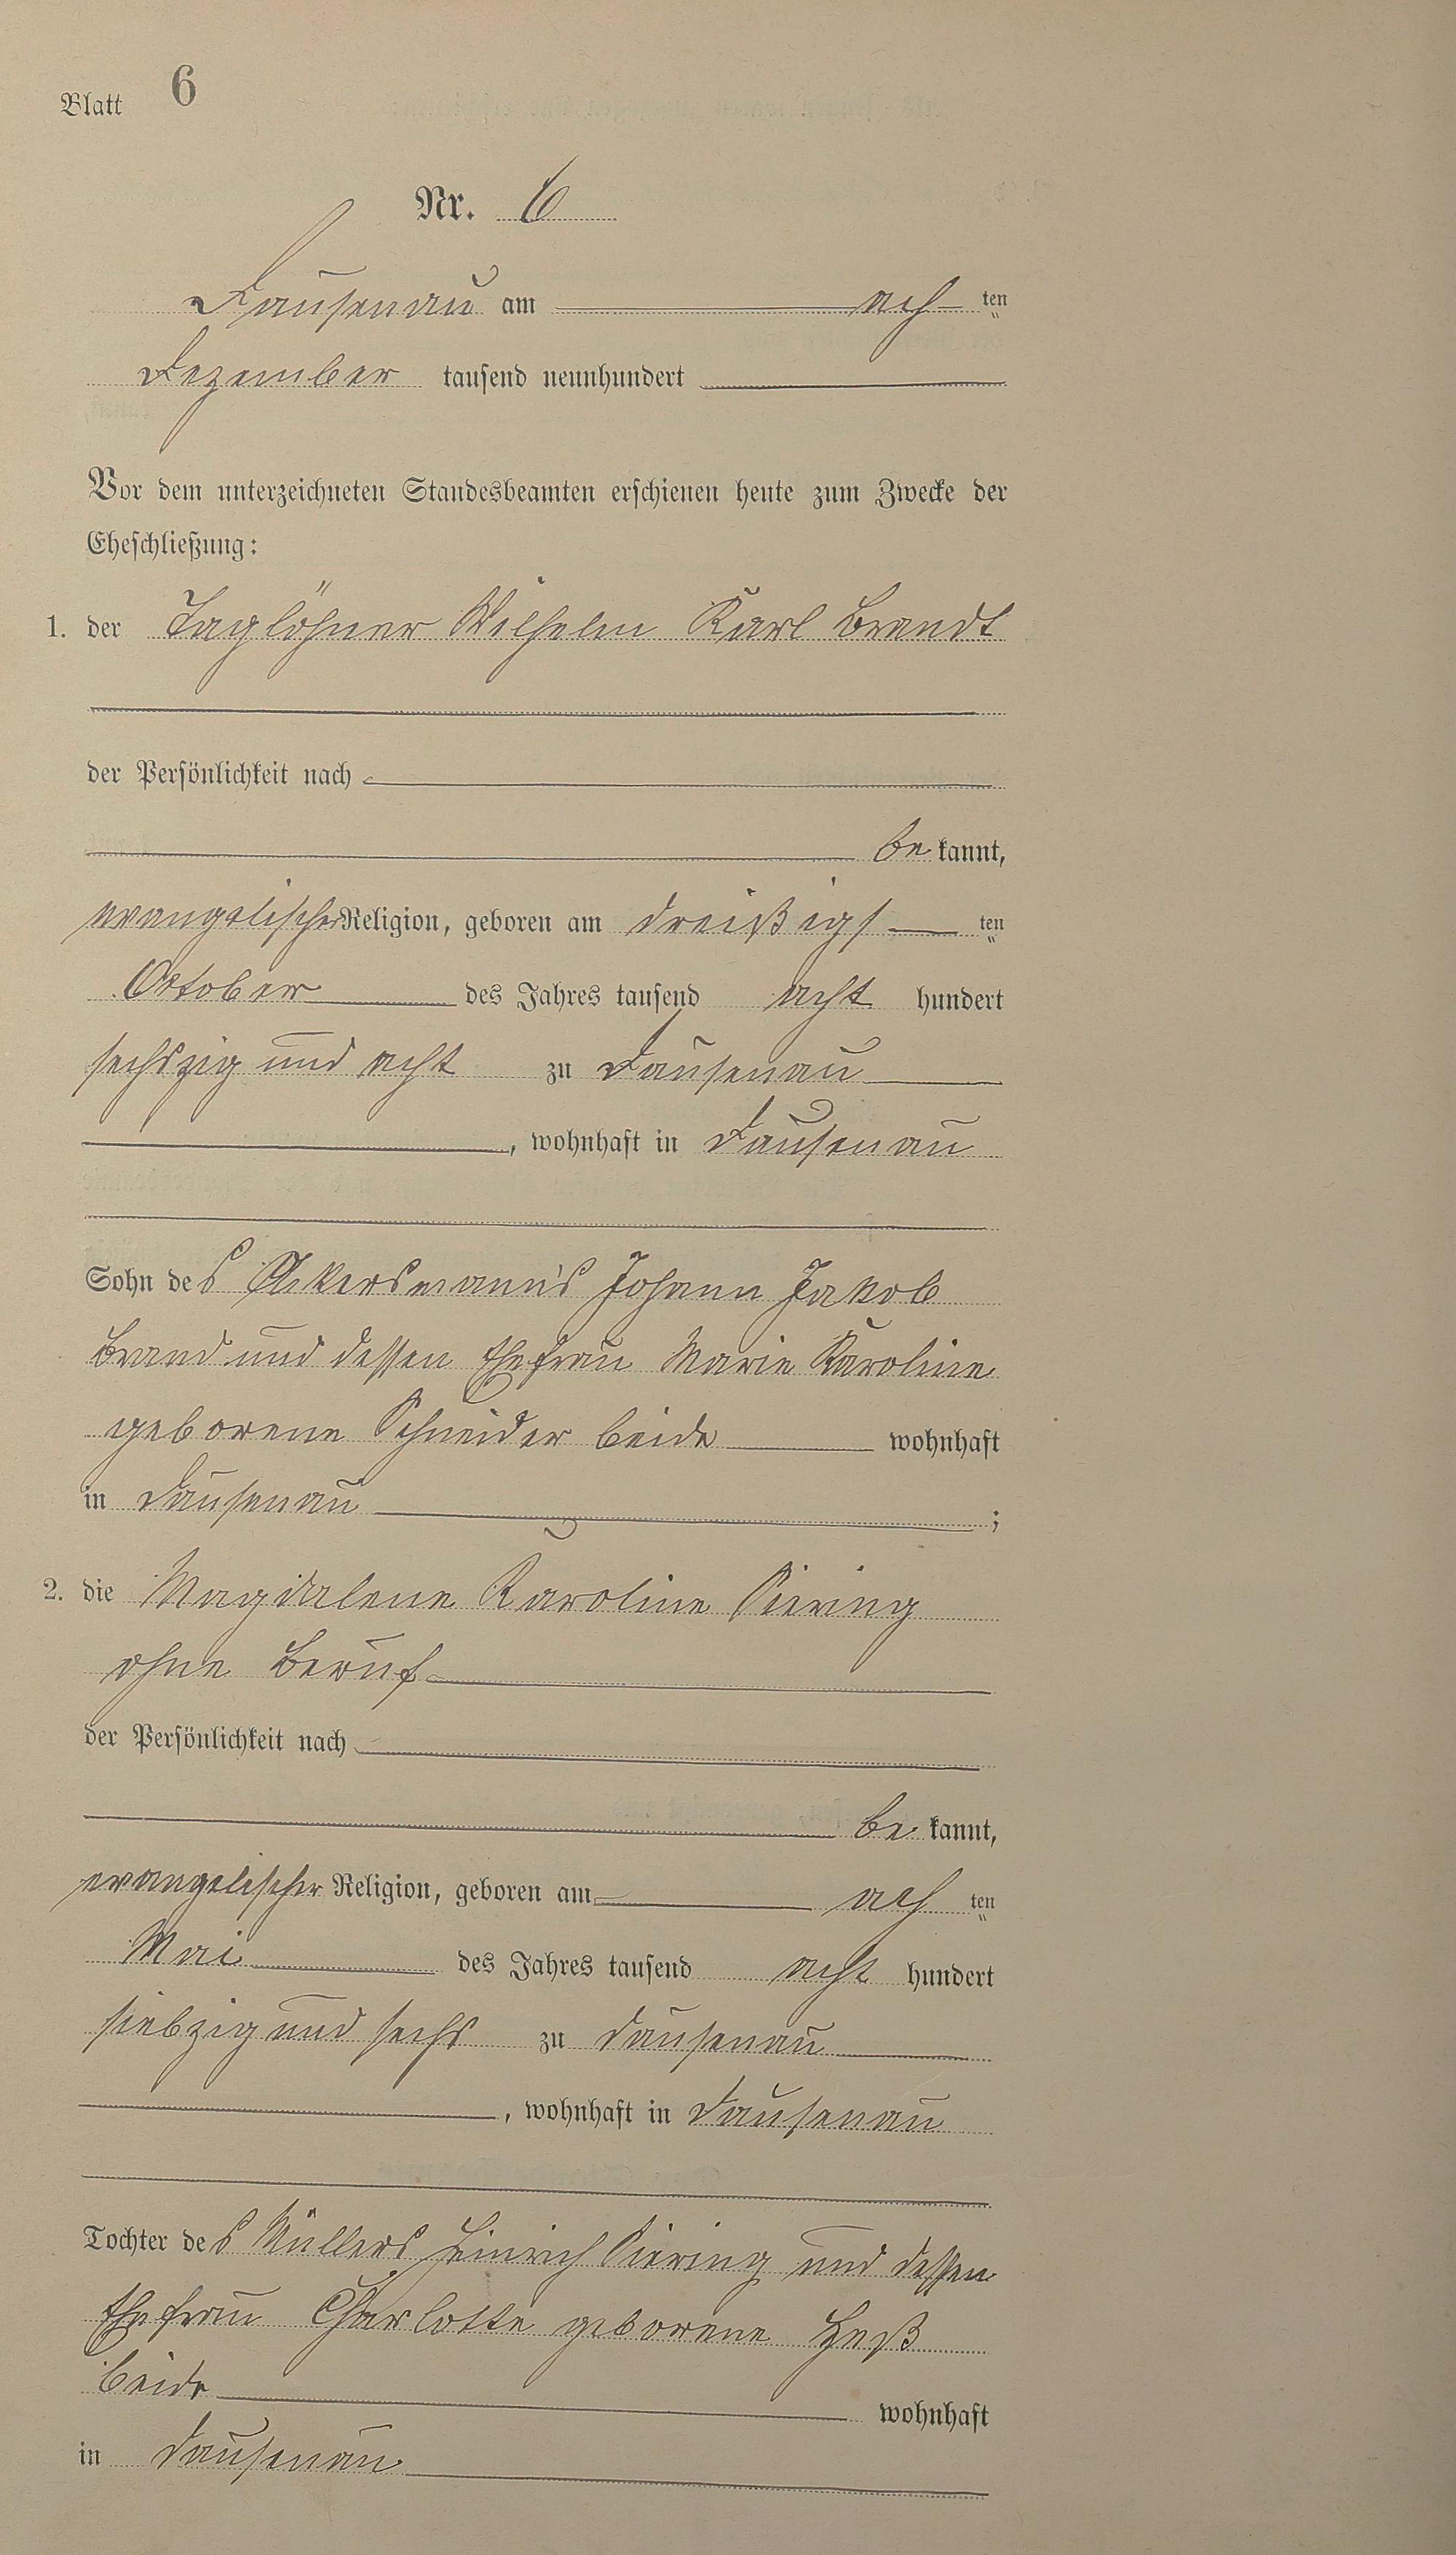 Blatt 6
Nr. 6
Dausenau am acht ten
Dezember tausend neunhundert
Vor dem unterzeichneten Standesbeamten erschienen heute zum Zwecke der
Eheschließung:
1. der Taglöhner Wilhelm Karl Brandt
der Persönlichkeit nach
be kannt,
evangelischer Religion, geboren am dreißigs ten
October des Jahres tausend acht hundert
sechszig und acht zu Dausenau
, wohnhaft in Dausenau
Sohn des Ackersmann's Johann Jakob
Brand und dessen Ehefrau Marie Karoline
geborene Schneider beide wohnhaft
in Dausenau ;
2. die Magdalene Karoline Piering
ohne Beruf
der Persönlichkeit nach
be kannt,
evangelischer Religion, geboren am ach ten
Mai des Jahres tausend acht hundert
siebzig und sechs zu Dausenau
, wohnhaft in Dausenau
Tochter des Müllers Heinrich Piering und dessen
Ehefrau Charlotte geborene Heß
beide wohnhaft
in Dausenau